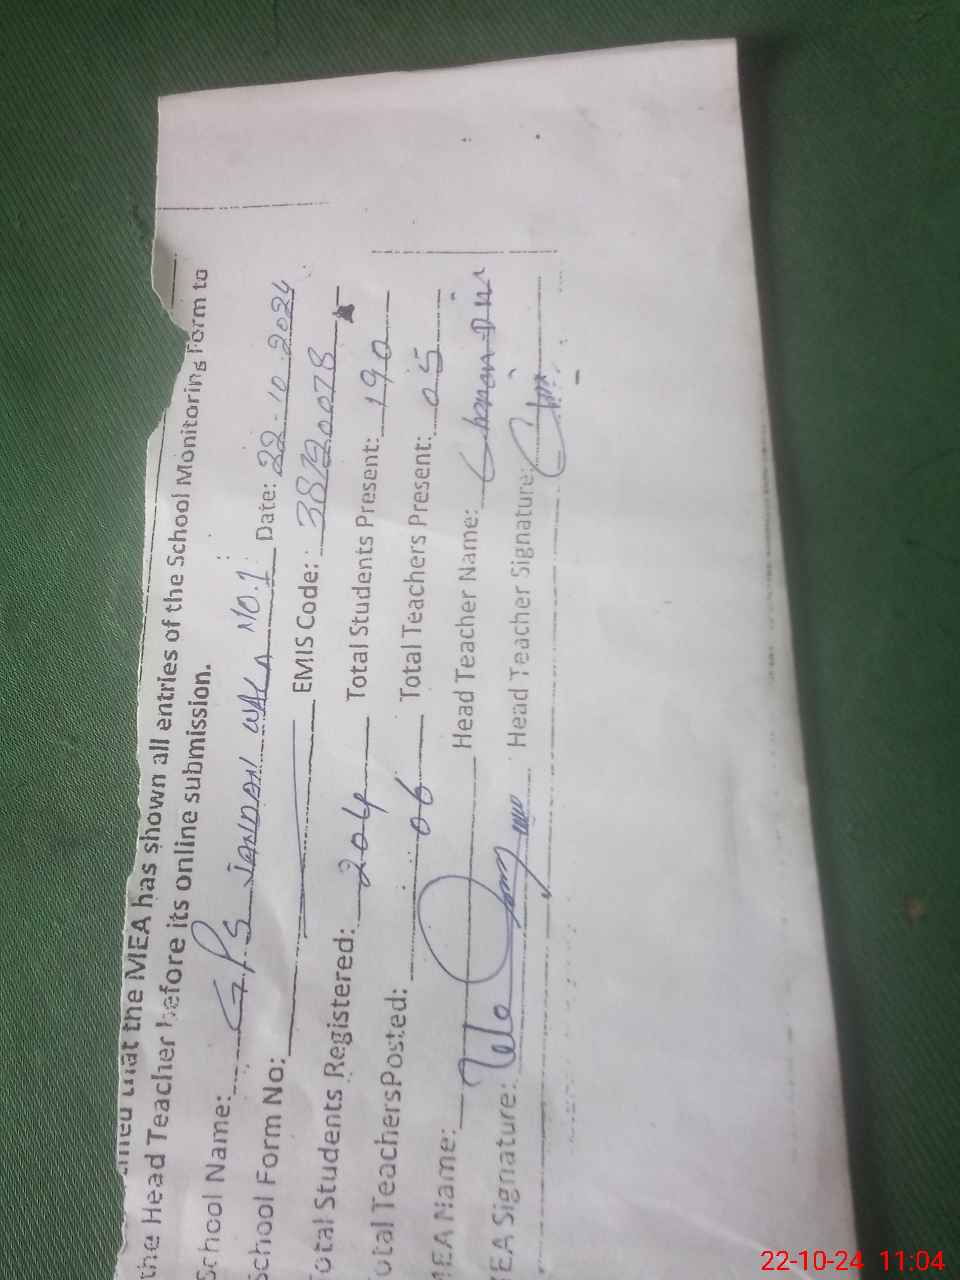 that the MEA has shown all entries of the School Monitoring Form to
the Head Teacher before its online submission.
School Name: GPS JANDAN WALA NO.1 Date: 22-10-2024
School Form No: EMIS Code: 38720078
Total Students Registered: 204 Total Students Present: 190
Total TeachersPosted: 06 Total Teachers Present: 05
MEA Name: Head Teacher Name: Chanan Din
MEA Signature: Head Teacher Signature:
22-10-24 11:04